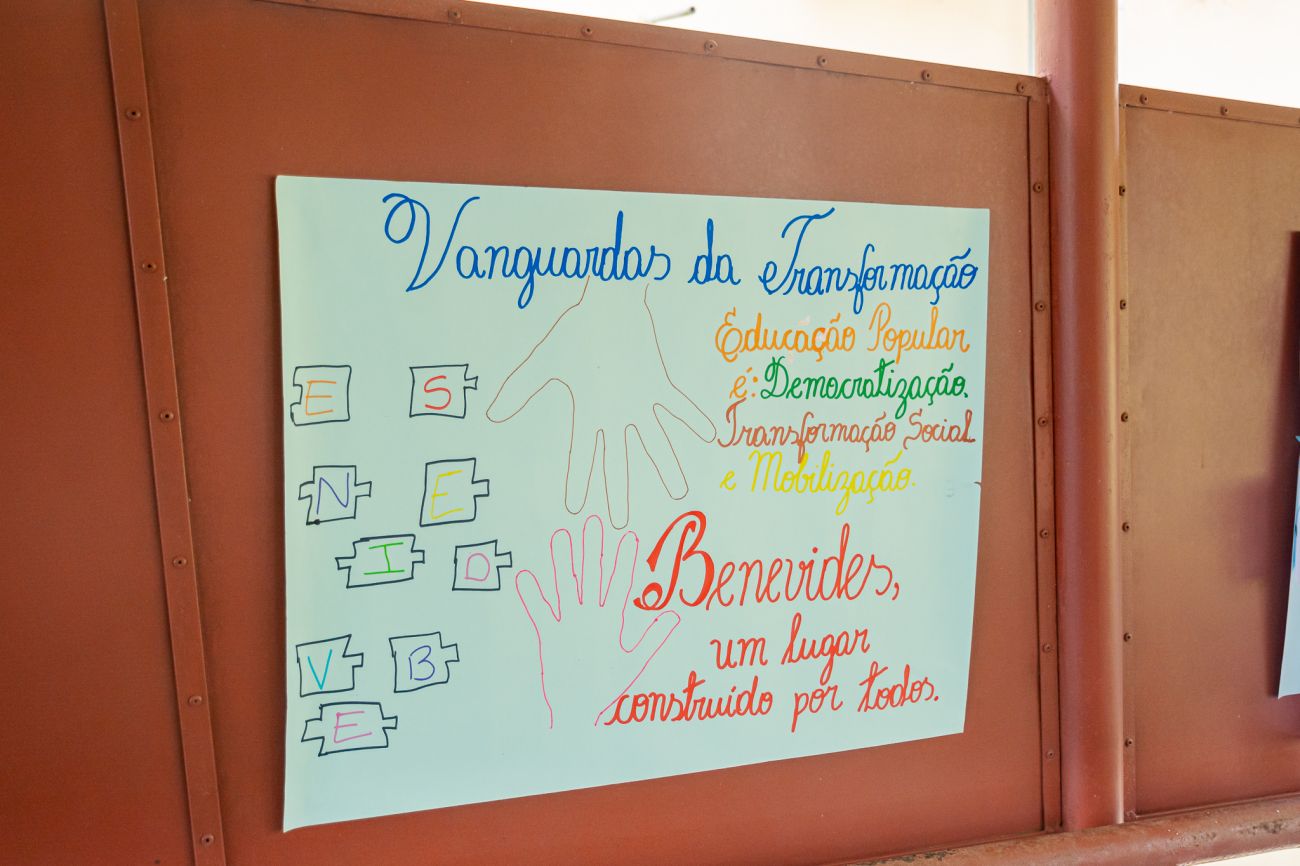 Vanguardas da Transformação
Educação Popular
é: Democratização.
Transformação Social
e Mobilização.
E S
N E
I D
V B
E
Benevides,
um lugar
construído por todos.